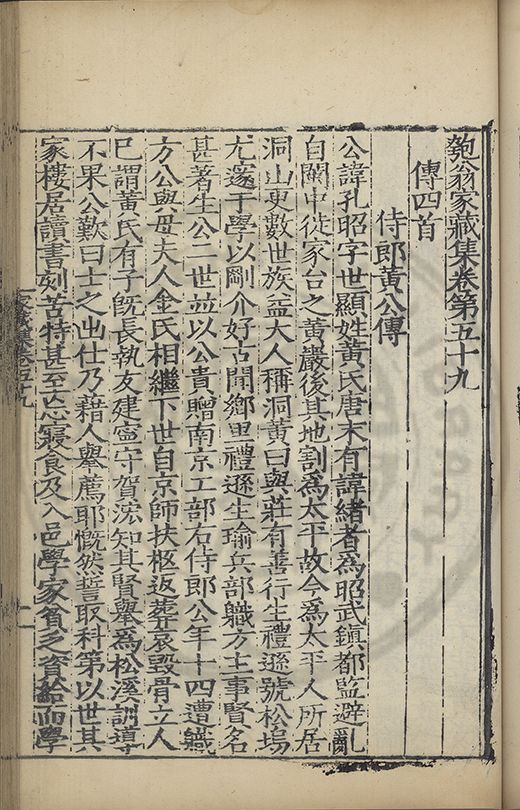 匏翁家藏集卷第五十九
傳四首
侍郎黃公傳
公諱孔昭字世顯姓黃氏唐末有諱緒者為昭武鎮都監避亂
自閩中徙家台之黃巖後其地割為太平故今為太平人所居
洞山更數世族益大人稱洞黃曰與莊有善行生禮遜號松塢
尤邃于學以剛介好古聞鄉里禮遜生瑜兵部職方主事賢名
甚著生公二世並以公貴贈南京工部右侍郎公年十四遭職
方公與母夫人金氏相繼下世自京師扶柩返葬哀毀骨立人
已謂黃氏有子旣長執友建寧守賀浤知其賢舉為松溪訓導
不果公歎曰士之出仕乃藉人舉薦耶慨然誓取科第以世其
家樓居讀書刻苦特甚至忘寢食及入邑學家貧乏資給而學
家藏集卷五十九
一